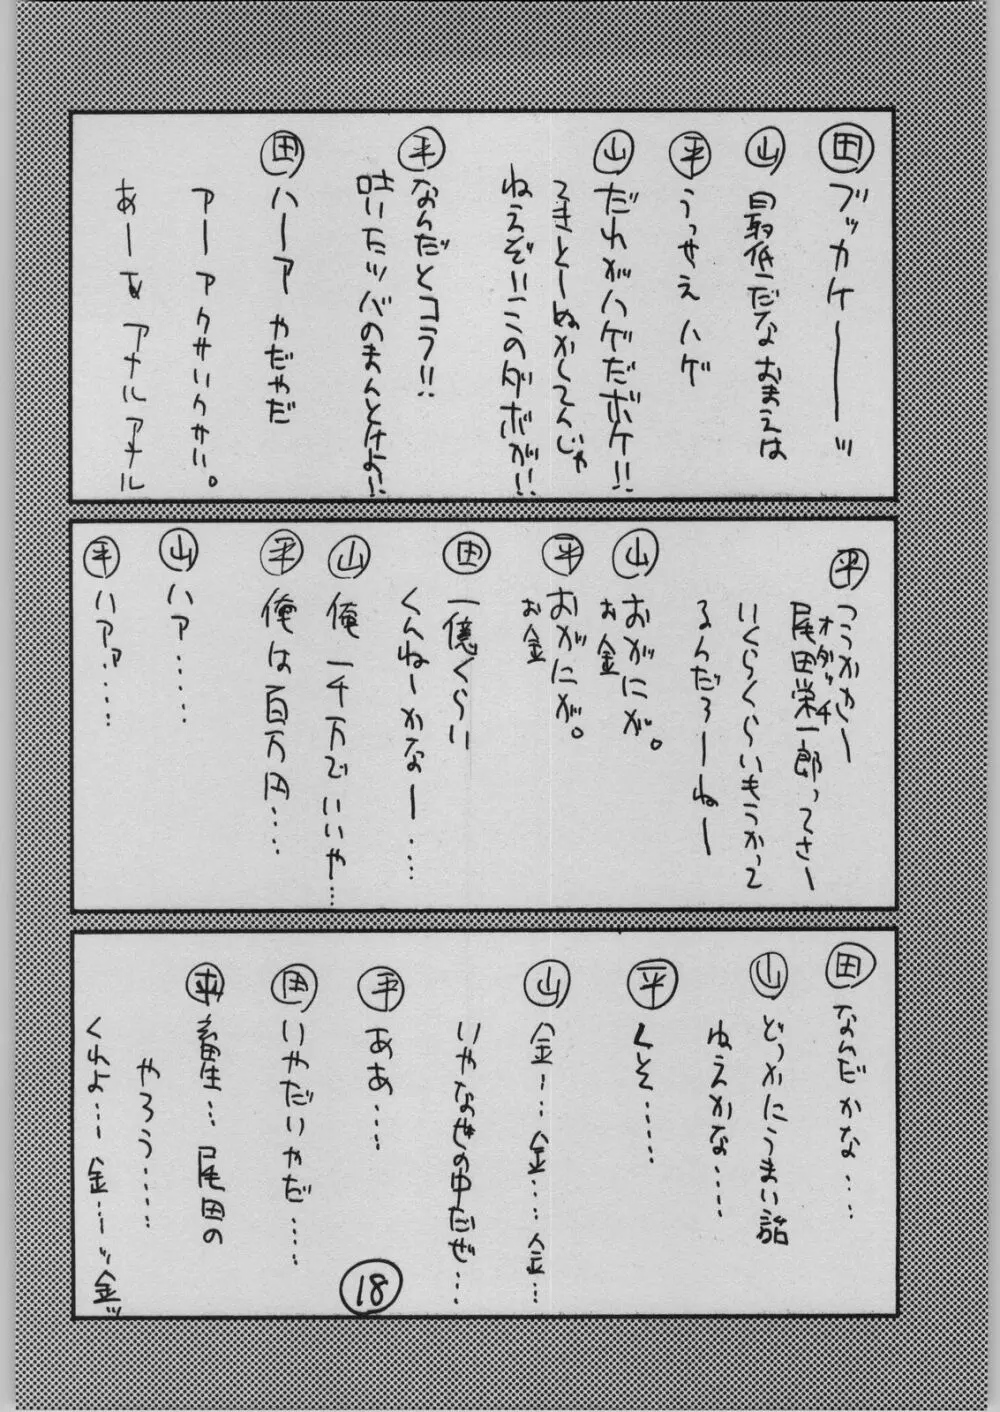 田 ブッカケーーーッ
山 最低だなおまえは
平 うっせえハゲ
山 だれがハゲだボケ!!
てきとーぬかしてんじゃ
ねえぞ!!このダボが!!
平 なんだとコラ!!
吐いたツバのまんとけよ!!
田 ハーア やだやだ
アー アクサイクサい。
あーあ アナルアナル
平 つうかさー
尾田栄一郎ってさー
オダッチ
いくらくらいもうかって
るんだろーねー
山 おがにが。
お金
平 おがにが。
お金
田 一億くらい
くんねーかなー・・・
山 俺一千万でいいや…
平 俺は百万円・・・・
山 ハア・・・・
平 ハアァ・・・・
田 なんだかな・・・
山 どっかにうまい話
ねえかな・・・・
平 くそ・・・・・
山 金・・・金・・・金・・・
いやなぜの中だぜ・・・
平 ああ・・・
田 いやだいやだ・・・・
平 畜生・・・尾田の
やろう・・・・・
くれよ・・・金・・・ッ金ッ
18